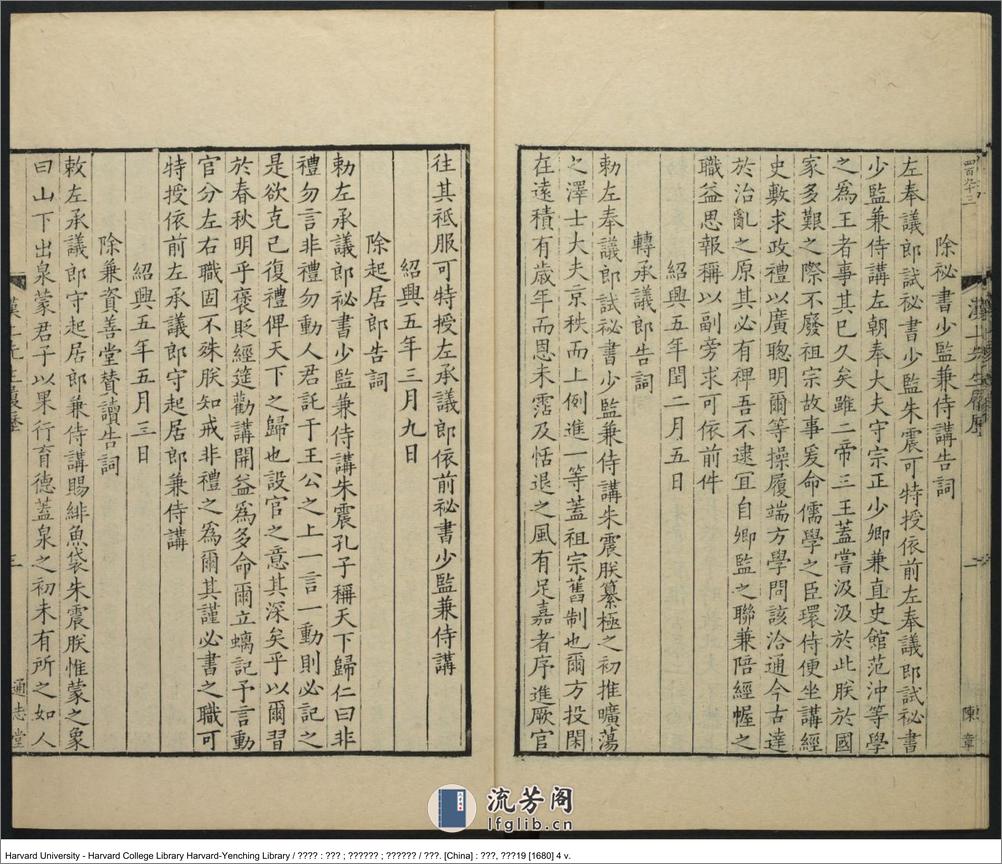 除祕書少監兼侍講告詞
左奉議郎試祕書少監朱震可特授依前左奉議郎試祕書
少監兼侍講左朝奉大夫守宗正少卿兼直史館范沖等學
之為王者事其已久矣雖二帝三王蓋嘗汲汲於此朕於國
家多艱之際不廢祖宗故事爰命儒學之臣環侍便坐講經
史敷求政禮以廣聰明爾等操履端方學問該洽通今古達
於治亂之原其必有裨吾不逮宜自卿監之聯兼陪經幄之
職益思報稱以副旁求可依前件
紹興五年閏二月五日
轉承議郎告詞
勑左奉議郎試祕書少監兼侍講朱震朕纂極之初推曠蕩
之澤士大夫京秩而上例進一等蓋祖宗舊制也爾方投閑
在遠積有歲年而恩未霑及恬退之風有足嘉者序進厥官
陳章
往其祗服可特授左承議郎依前祕書少監兼侍講
紹興五年三月九日
除起居郎告詞
勑左承議郎祕書少監兼侍講朱震孔子稱天下歸仁曰非
禮勿言非禮勿動人君託于王公之上一言一動則必記之
是欲克已復禮俾天下之歸也設官之意其深矣乎以爾習
於春秋明乎褒貶經筵勸講開益為多命爾立螭記予言動
官分左右職固不殊朕知戒非禮之為爾其謹必書之職可
特授依前左承議郎守起居郎兼侍講
紹興五年五月三日
除兼資善堂贊讀告詞
敕左承議郎守起居郎兼侍講賜緋魚袋朱震朕惟蒙之象
曰山下出泉蒙君子以果行育德蓋泉之初未有所之如人
三
通志堂
流芳阁
lfglib.cn
Harvard University - Harvard College Library Harvard-Yenching Library / ???? : ??? ; ?????? ; ?????? / ???. [China] : ???, ???19 [1680] 4 v.